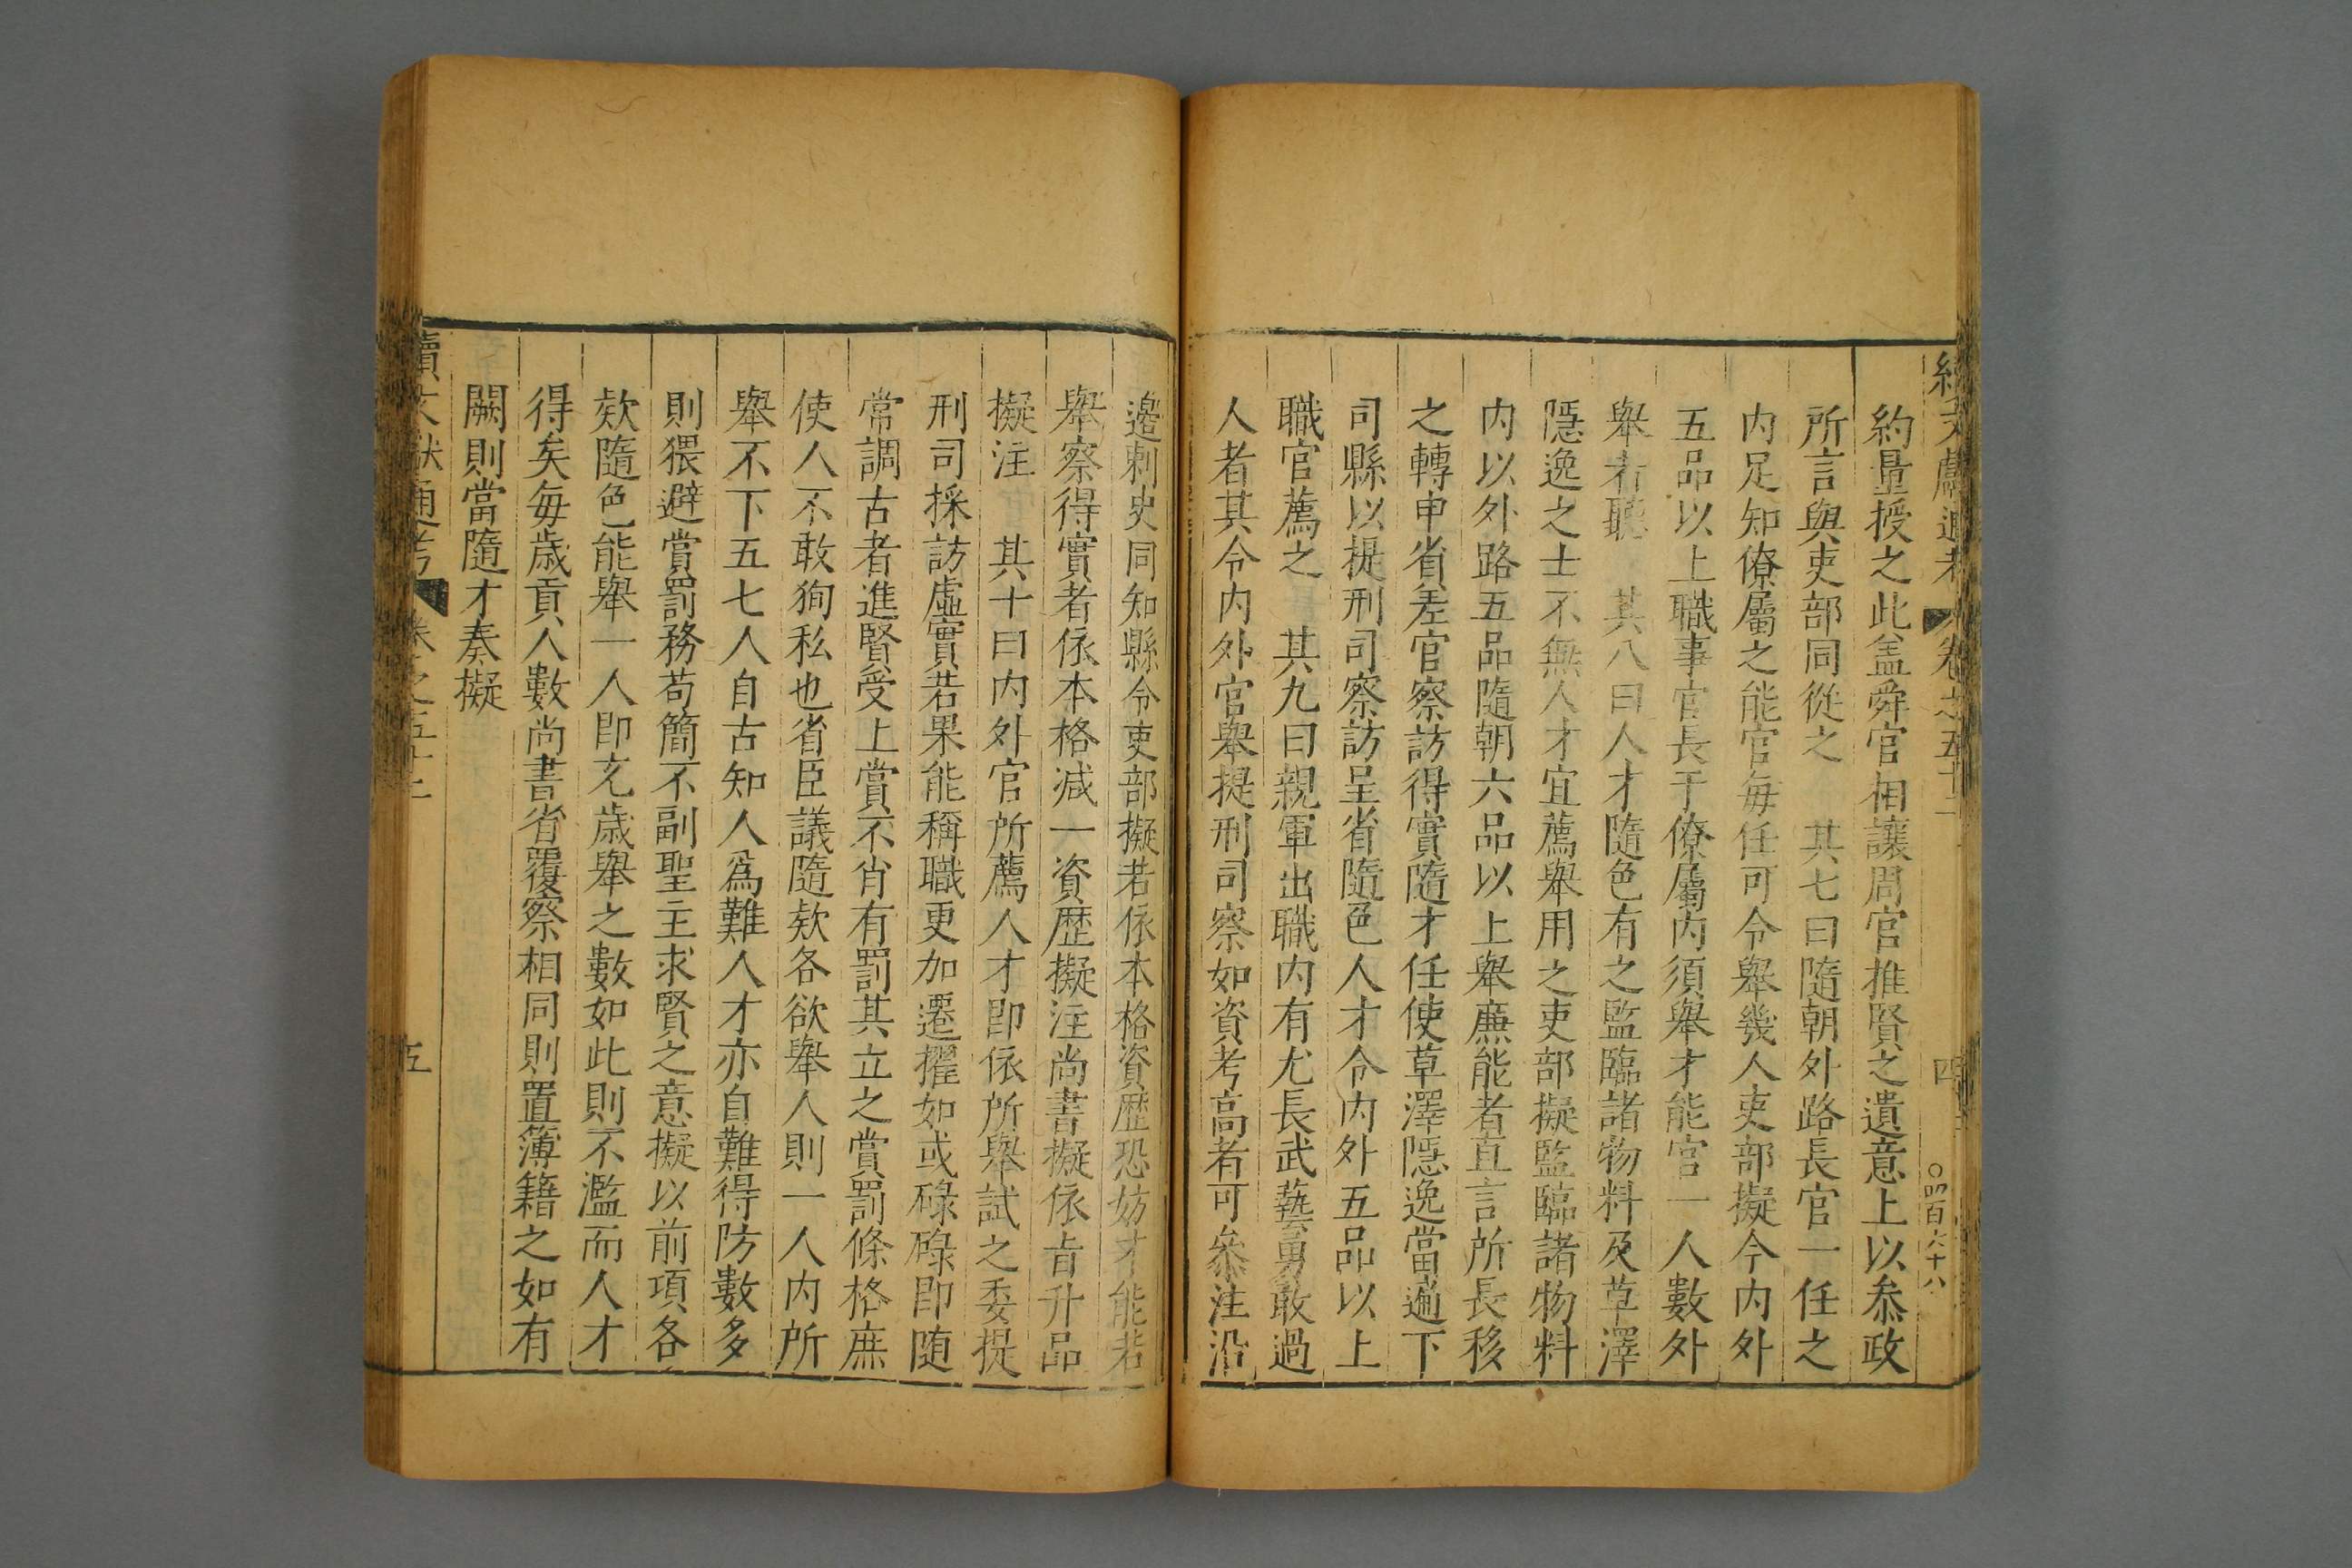 約量授之此盖舜官相讓周官推賢之遺意上以叅政
所言與吏部同從之　其七曰隨朝外路長官一任之
内足知僚屬之能官每任可令舉幾人吏部擬今内外
五品以上職事官長于僚屬内須舉才能官一人數外
舉者聽　其八曰人才隨色有之監臨諸物料及草澤
隱逸之士不無人才宜薦舉用之吏部擬監臨諸物料
内以外路五品隨朝六品以上舉廉能者直言所長移
之轉申省差官察訪得實隨才任使草澤隱逸當遍下
司縣以提刑司察訪呈省隨色人才令内外五品以上
職官薦之　其九曰親軍出職内有尤長武藝勇敢過
人者其令内外官舉提刑司察如資考高者可叅注沿
邊刺史同知縣令吏部擬若依本格資歷恐妨才能若
舉察得實者依本格减一資歷擬注尚書擬依㫖升品
擬注　其十曰内外官所薦人才即依所舉試之委提
刑司採訪虛實若果能稱職更加遷擢如或碌碌即随
常調古者進賢受上賞不肖有罰其立之賞罰條格庶
使人不敢狥私也省臣議隨欵各欲舉人則一人内所
舉不下五七人自古知人爲難人才亦自難得防數多
則猥避賞罰務苟簡不副聖主求賢之意擬以前項各
欵隨色能舉一人即充歳舉之數如此則不濫而人才
得矣每歳貢人數尚書省覆察相同則置簿籍之如有
闕則當隨才奏擬
四
四百六十八
五